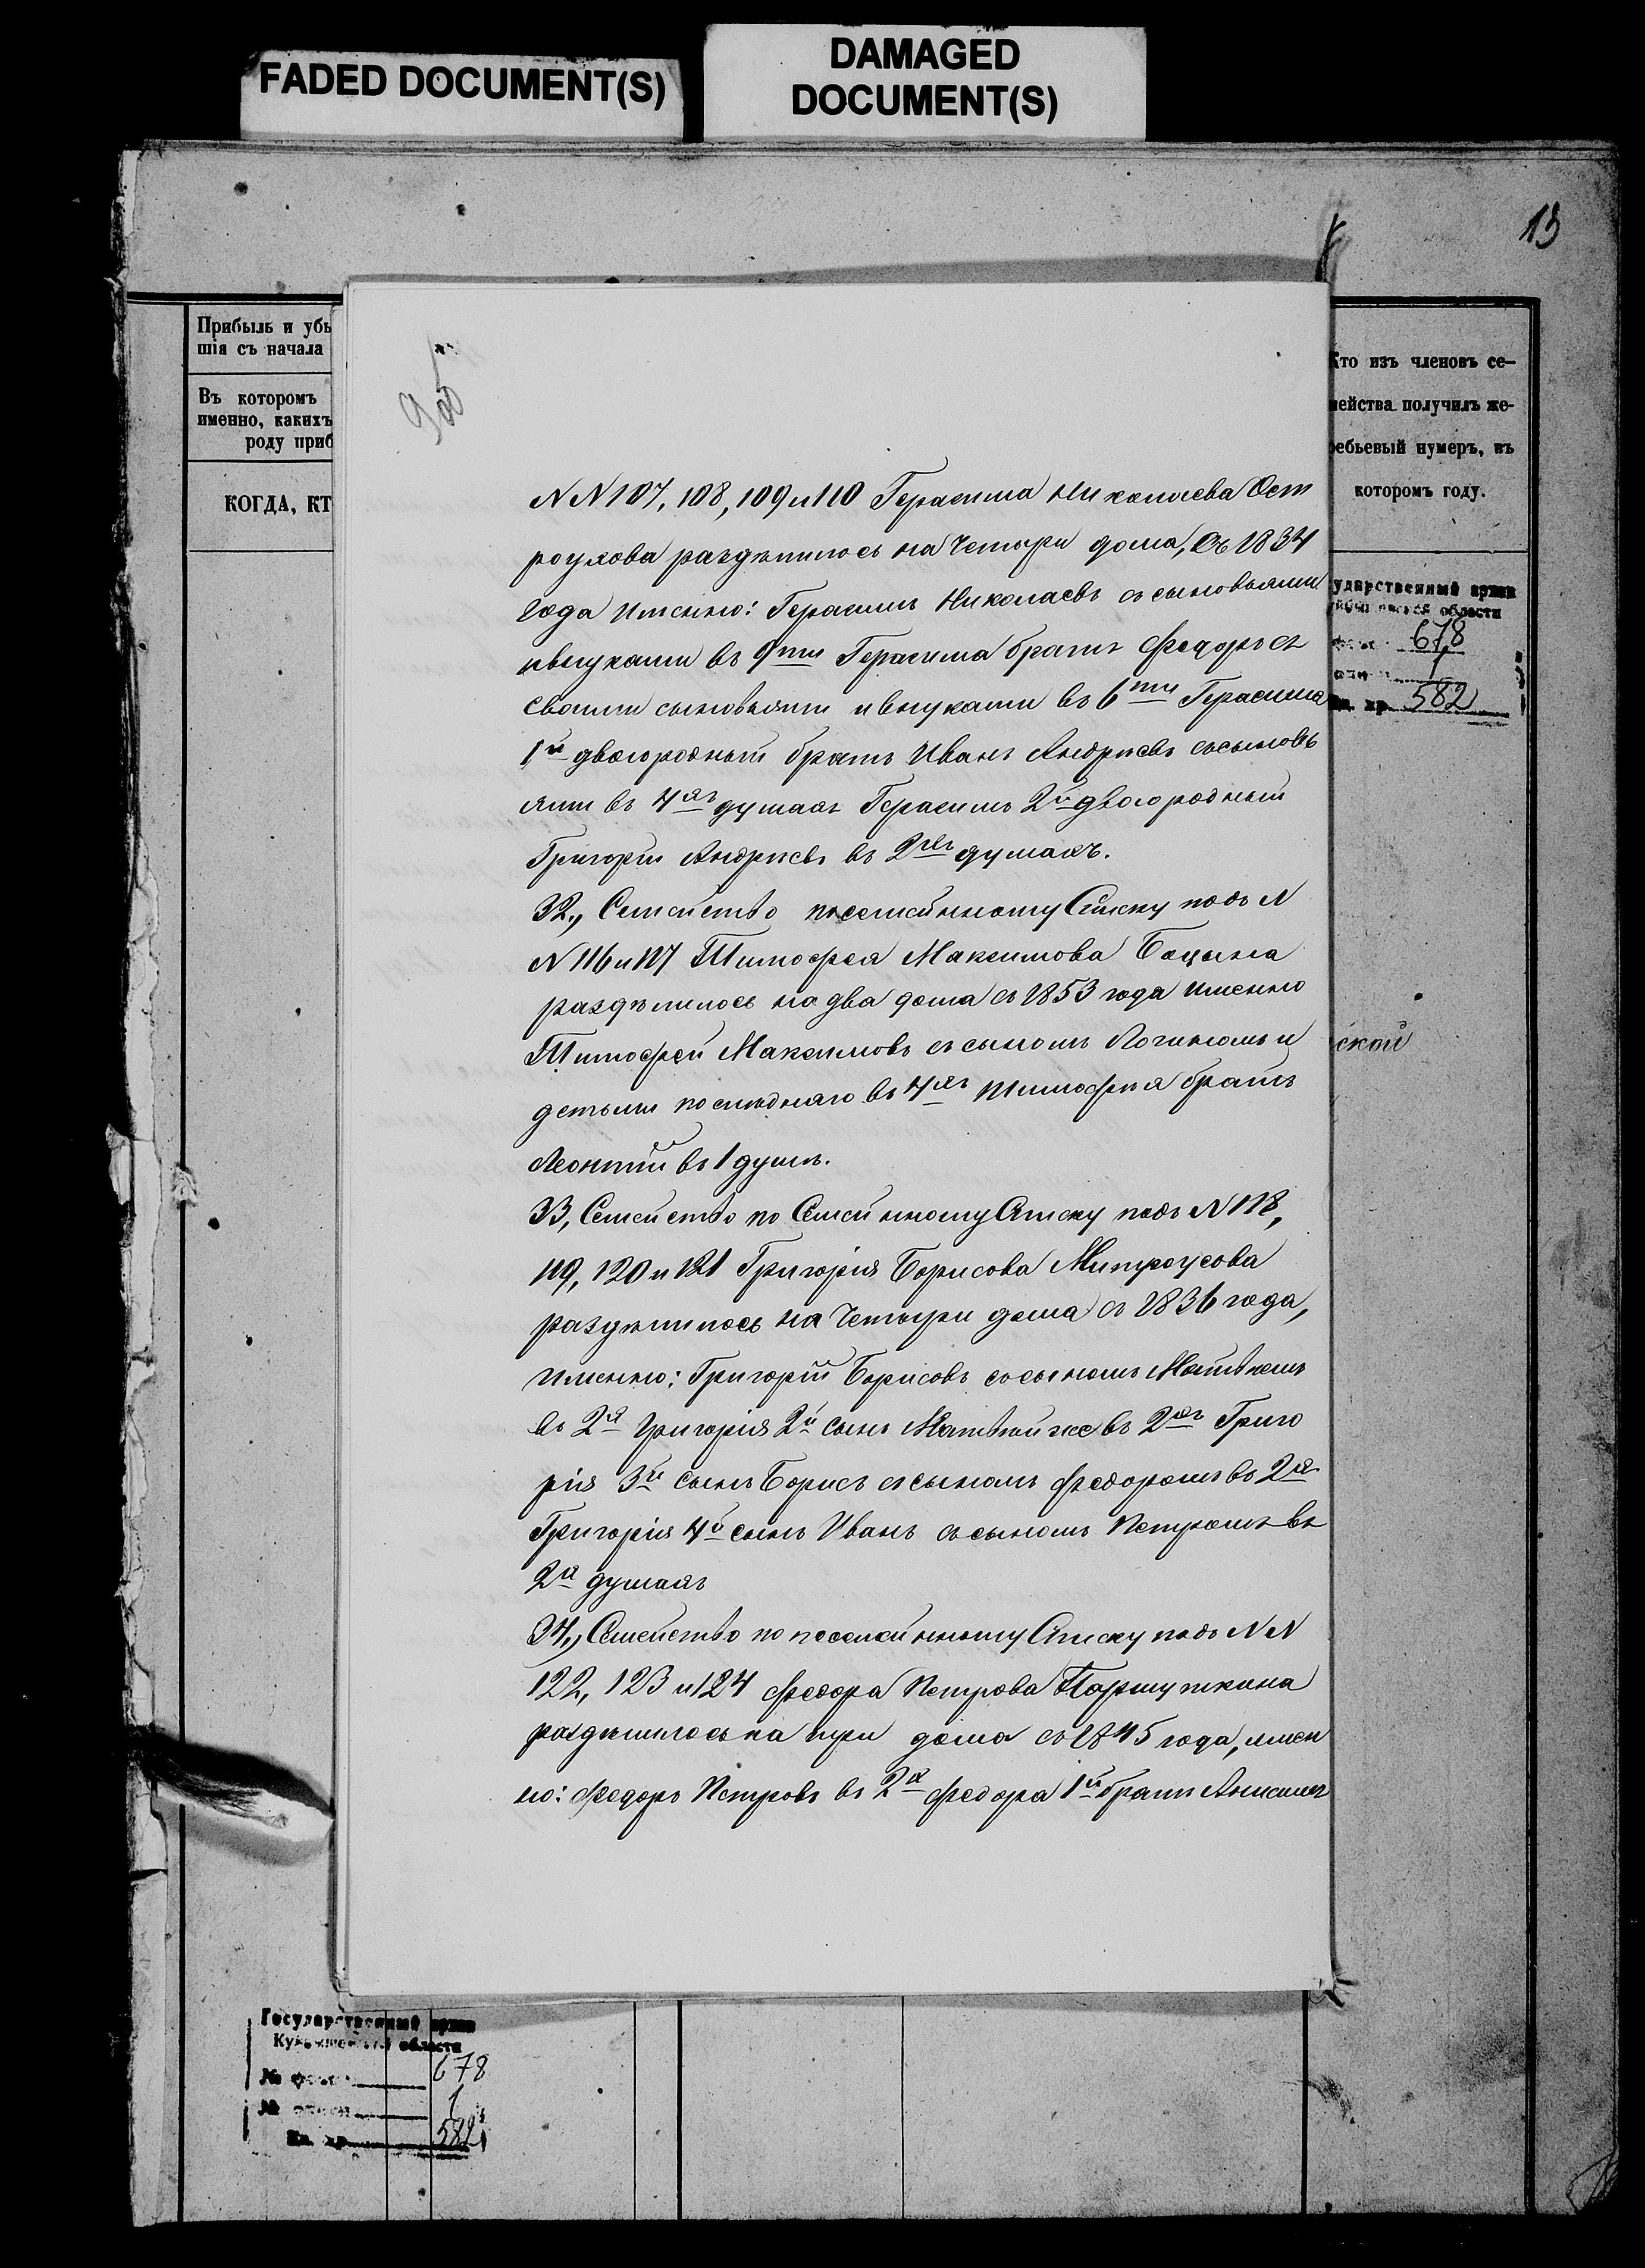 FADED DOCUMENT(S)
DAMAGED
DOCUMENT(S)
13
Прибыль и убы
шія съ начала
Въ которомъ
именно, какихъ
роду приб
КОГДА, КТ
Кто изъ членовъ се-
мейства получилъ же-
ребьевый нумеръ, въ
которомъ году.
ударственный архив
области
678
1
582
ской
N N 107, 108, 109 и 110 Герасима Николаева Ост
роухова раздѣлилось на Четыри дома, Съ 1834
года Именно: Герасимъ Николаевъ съ сыновьями
ивнуками въ 9ти Герасима братъ Федоръ съ
своими сыновьями ивнуками въ 6ти Герасима
1й двоюродный братъ Иванъ Андрѣевъ съсыновь
ями въ 4хъ душахъ Герасимъ 2й двоюродный
Григорій Андрѣевъ въ 2хъ душахъ.
32., Семейство посемейнному Списку подъ N
N 116 и 117 Тимофея Максимова Бацына
раздѣлилось на два дома съ 1853 года Именно
Тимофей Максимовъ съ сыномъ Логиномъ и
детьми послѣдняго въ 4хъ Тимофѣя братъ
Леонтій въ 1 душѣ.
33, Семейство по Семейнному Списку подъ N 118,
119, 120 и 121 Григорія Борисова Митроусова
раздѣлилось на Четыри дома съ 1836 года,
Именно: Григорій Борисовъ съсыномъ Матвѣемъ
въ 2хъ Григорія 2й сынъ Матвѣй же въ 2хъ Григо
рія 3й сынъ Борисъ съ сыномъ Федоромъ въ 2хъ
Григорія 4й сынъ Иванъ съ сыномъ Петромъ въ
2х душахъ
34., Семейство по посемейнному Списку подъ N N
122, 123 и 124 Федора Петрова Паршуткина
раздѣлилось на три дома съ 1845 года, имен
но: Федоръ Петровъ въ 2х Федора 1й братъ Анисимъ
Государственный архив
Куйбышевской области
№ 678
№ 1
582